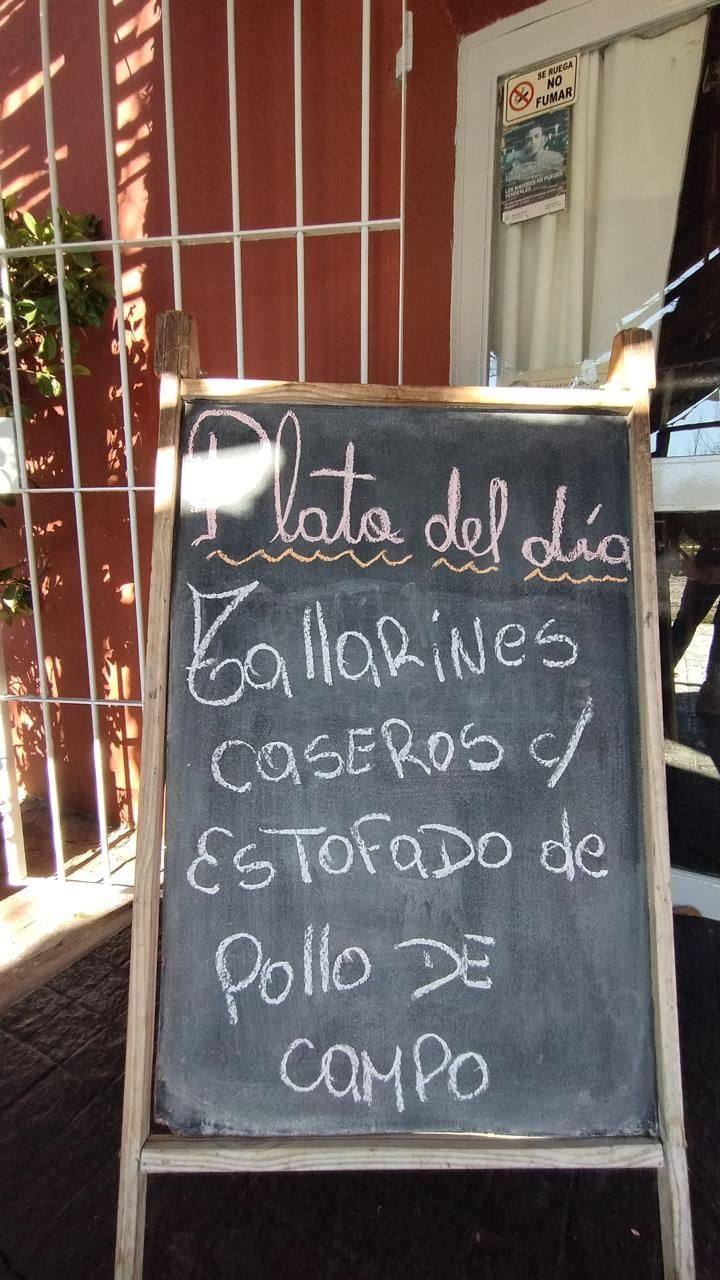 SE RUEGA
NO
FUMAR
LOS MAYORES NO PUEDEN
VENDERLES
Plato del día
Tallarines
caseros c/
Estofado de
Pollo DE
campo